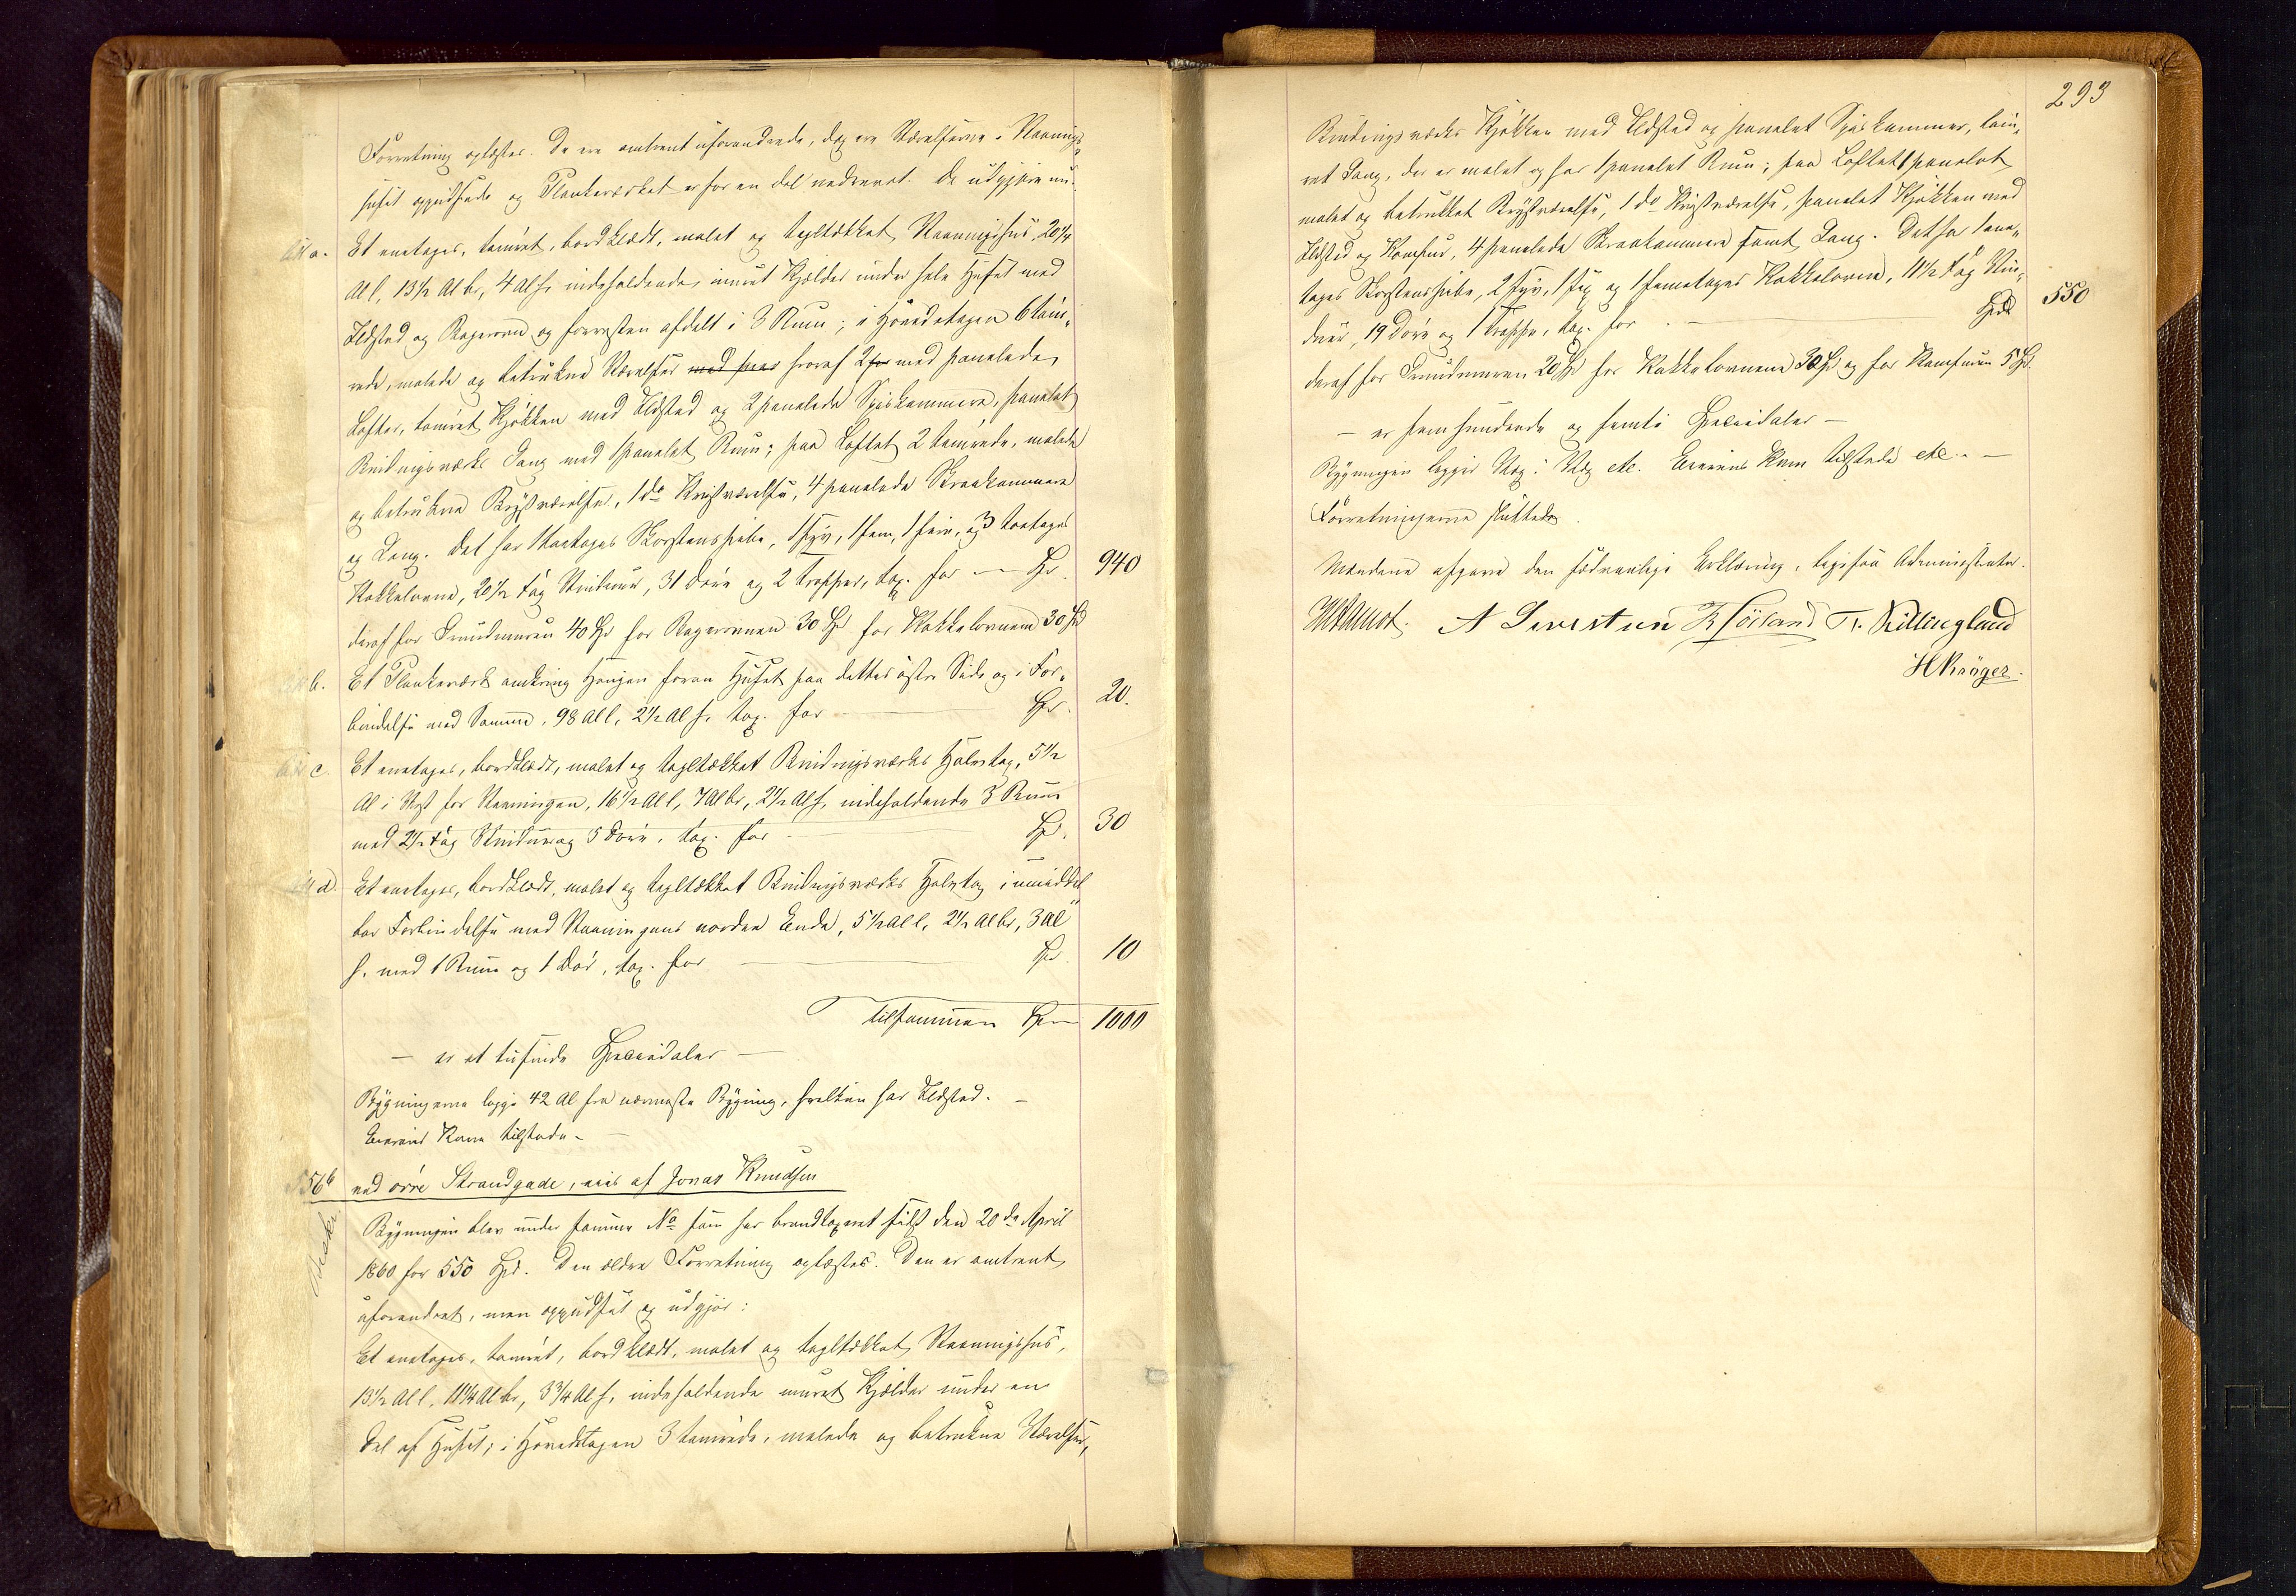 Forretning oplæstes. De ere omtrent uforandrede, dog ere Værelserne i Vaanings-
huset oppudsede og Plankeværket er for en del nedrevet. De udgjøre nu:
a. Et enetages, tømret, bordklædt, malet og tagltækket Vaaningshus, 20 1/4
Al l, 13 1/2 Al br, 4 Al h, indeholdende, muret Kjælder under hele Huset med
Ildsted og Bagerovn og forresten afdelt i 3 Rum; i Hovedetagen 6 tøm-
rede, malede og betrukne Værelser med pan hvoraf 2 for med panelede
Lofter, tømret Kjøkken med Ildsted og 2 panelede Spiskammere, panelet
Bindingsværks Gang med 1 panelet Rum; paa Loftet 2 tømrede, malede
og betrukne Kvistværelser, 1 do Kvistværelse, 4 panelede Skraakammere
og Gang. Det har 1 toetages Skorstenspibe, 1 fyr, 1 fem, 1 fire, og 3 toetages
Kakkelovne, 20 1/2 Fag Vinduer, 31 Døre og 2 Trapper, tax. for — Spd. 940
deraf for Grundmuren 40 Spd for Bagerovnen 30 Spd for Kakkelovnene 30 Spd
b. Et Plankeværk omkring Haugen foran Huset paa dettes østre Side og i For-
bindelse med Samme, 98 Al l, 2 1/2 Al h, tax. for — Spd. 20.
c. Et enetages, bordklædt, malet og tagltækket Bindingsværks Halvtag, 5 1/2
Al i Vest for Vaaningen, 16 1/2 Al l, 7 Al br, 2 1/2 Al h, indeholdende 3 Rum
med 2 1/2 Fag Vinduer og 5 Døre, tax. for — Spd. 30
d. Et enetages, bordklædt, malet og tagltækket Bindingsværks Halvtag i umiddel-
bar Forbindelse med Vaaningens nordre Ende, 5 1/2 Al l, 2 1/2 Al br, 3 Al
h. med 1 Rum og 1 Dør, tax. for — Spd. 10
tilsammen Spd — 1000
— er et tusinde Speciedaler —
Bygningerne ligge 42 Al fra nærmeste Bygning, hvilken har Ildsted. —
Eierens Kone tilstede. —
556b ved øvre Strandgade, eies af Jonas Knudsen
Bygningen blev under samme No som her brandtaxeret sidst den 20de April
1860 for 550 Spd. Den ældre Forretning oplæstes. Den er omtrent
uforandret, men oppudset og udgjør:
Et enetages, tømret, bordklædt, malet og tagltækket Vaaningshus,
13 1/2 Al l, 11 1/4 Al br, 3 3/4 Al h, indeholdende muret Kjælder under en
Del af Huset; i Hovedetagen 3 tømrede, malede og betrukne Værelser,
293
Bindingsværks Kjøkken med Ildsted og panelet Spiskammer, tøm-
ret Gang, der er malet og har 1 panelet Rum; paa Loftet 1 panelet
malet og betrukket Kvistværelse, 1 do Kvistværelse, panelet Kjøkken med
Ildsted og Komfur, 4 panelede Skraakammere samt Gang. Det har 1 ene-
tages Skorstenspibe, 2 fyr, 1 sex og 1 femetages Kakkelovne, 11 1/2 Fag Vin-
duer, 19 Døre og 1 Trappe, tax. for — Spd 550
deraf for Grundmuren 20 Spd for Kakkelovnene 30 Spd og for Komfuren 5 Spd.
— er femhundrede og femti Speciedaler —
Bygningen ligger etc. Eierens Kone tilstede etc. —
Forretningerne sluttede.
Mændene afgave den sædvanlige Erklæring, ligesaa Administrator.
A Sivertsen T. Killingland
H Krøger.